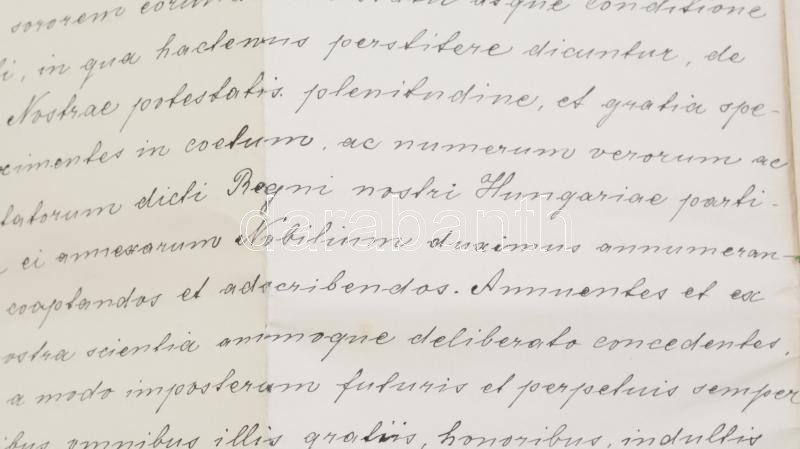 sororem conditione
in qua hactenus perstitere dicuntur, de
Nostrae potestatis plenitudine, et gratia spe-
ximentes in coetum, ac numerum verorum ac
tatorum dicti Regni nostri Hungariae parti-
ei annexarum Nobilium duximus annumeran-
coaptandos et adscribendos. Annuentes et ex
ostra scientia animoque deliberato concedentes,
a modo imposterum futuris et perpetuis semper
ibus omnibus illis gratiis, honoribus, indultis
darabanth